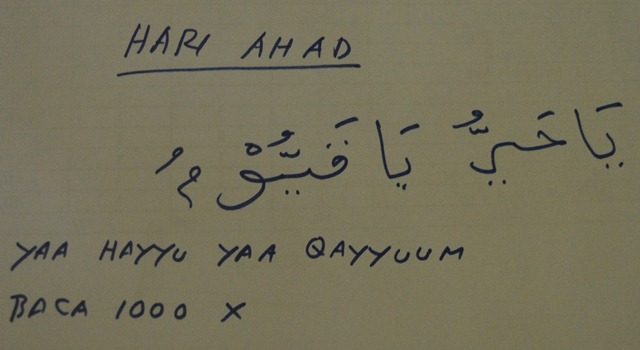 HARI AHAD
يَا حَيُّ يَا قَيُّوْمُ
YAA HAYYU YAA QAYYUUM
BACA 1000 X